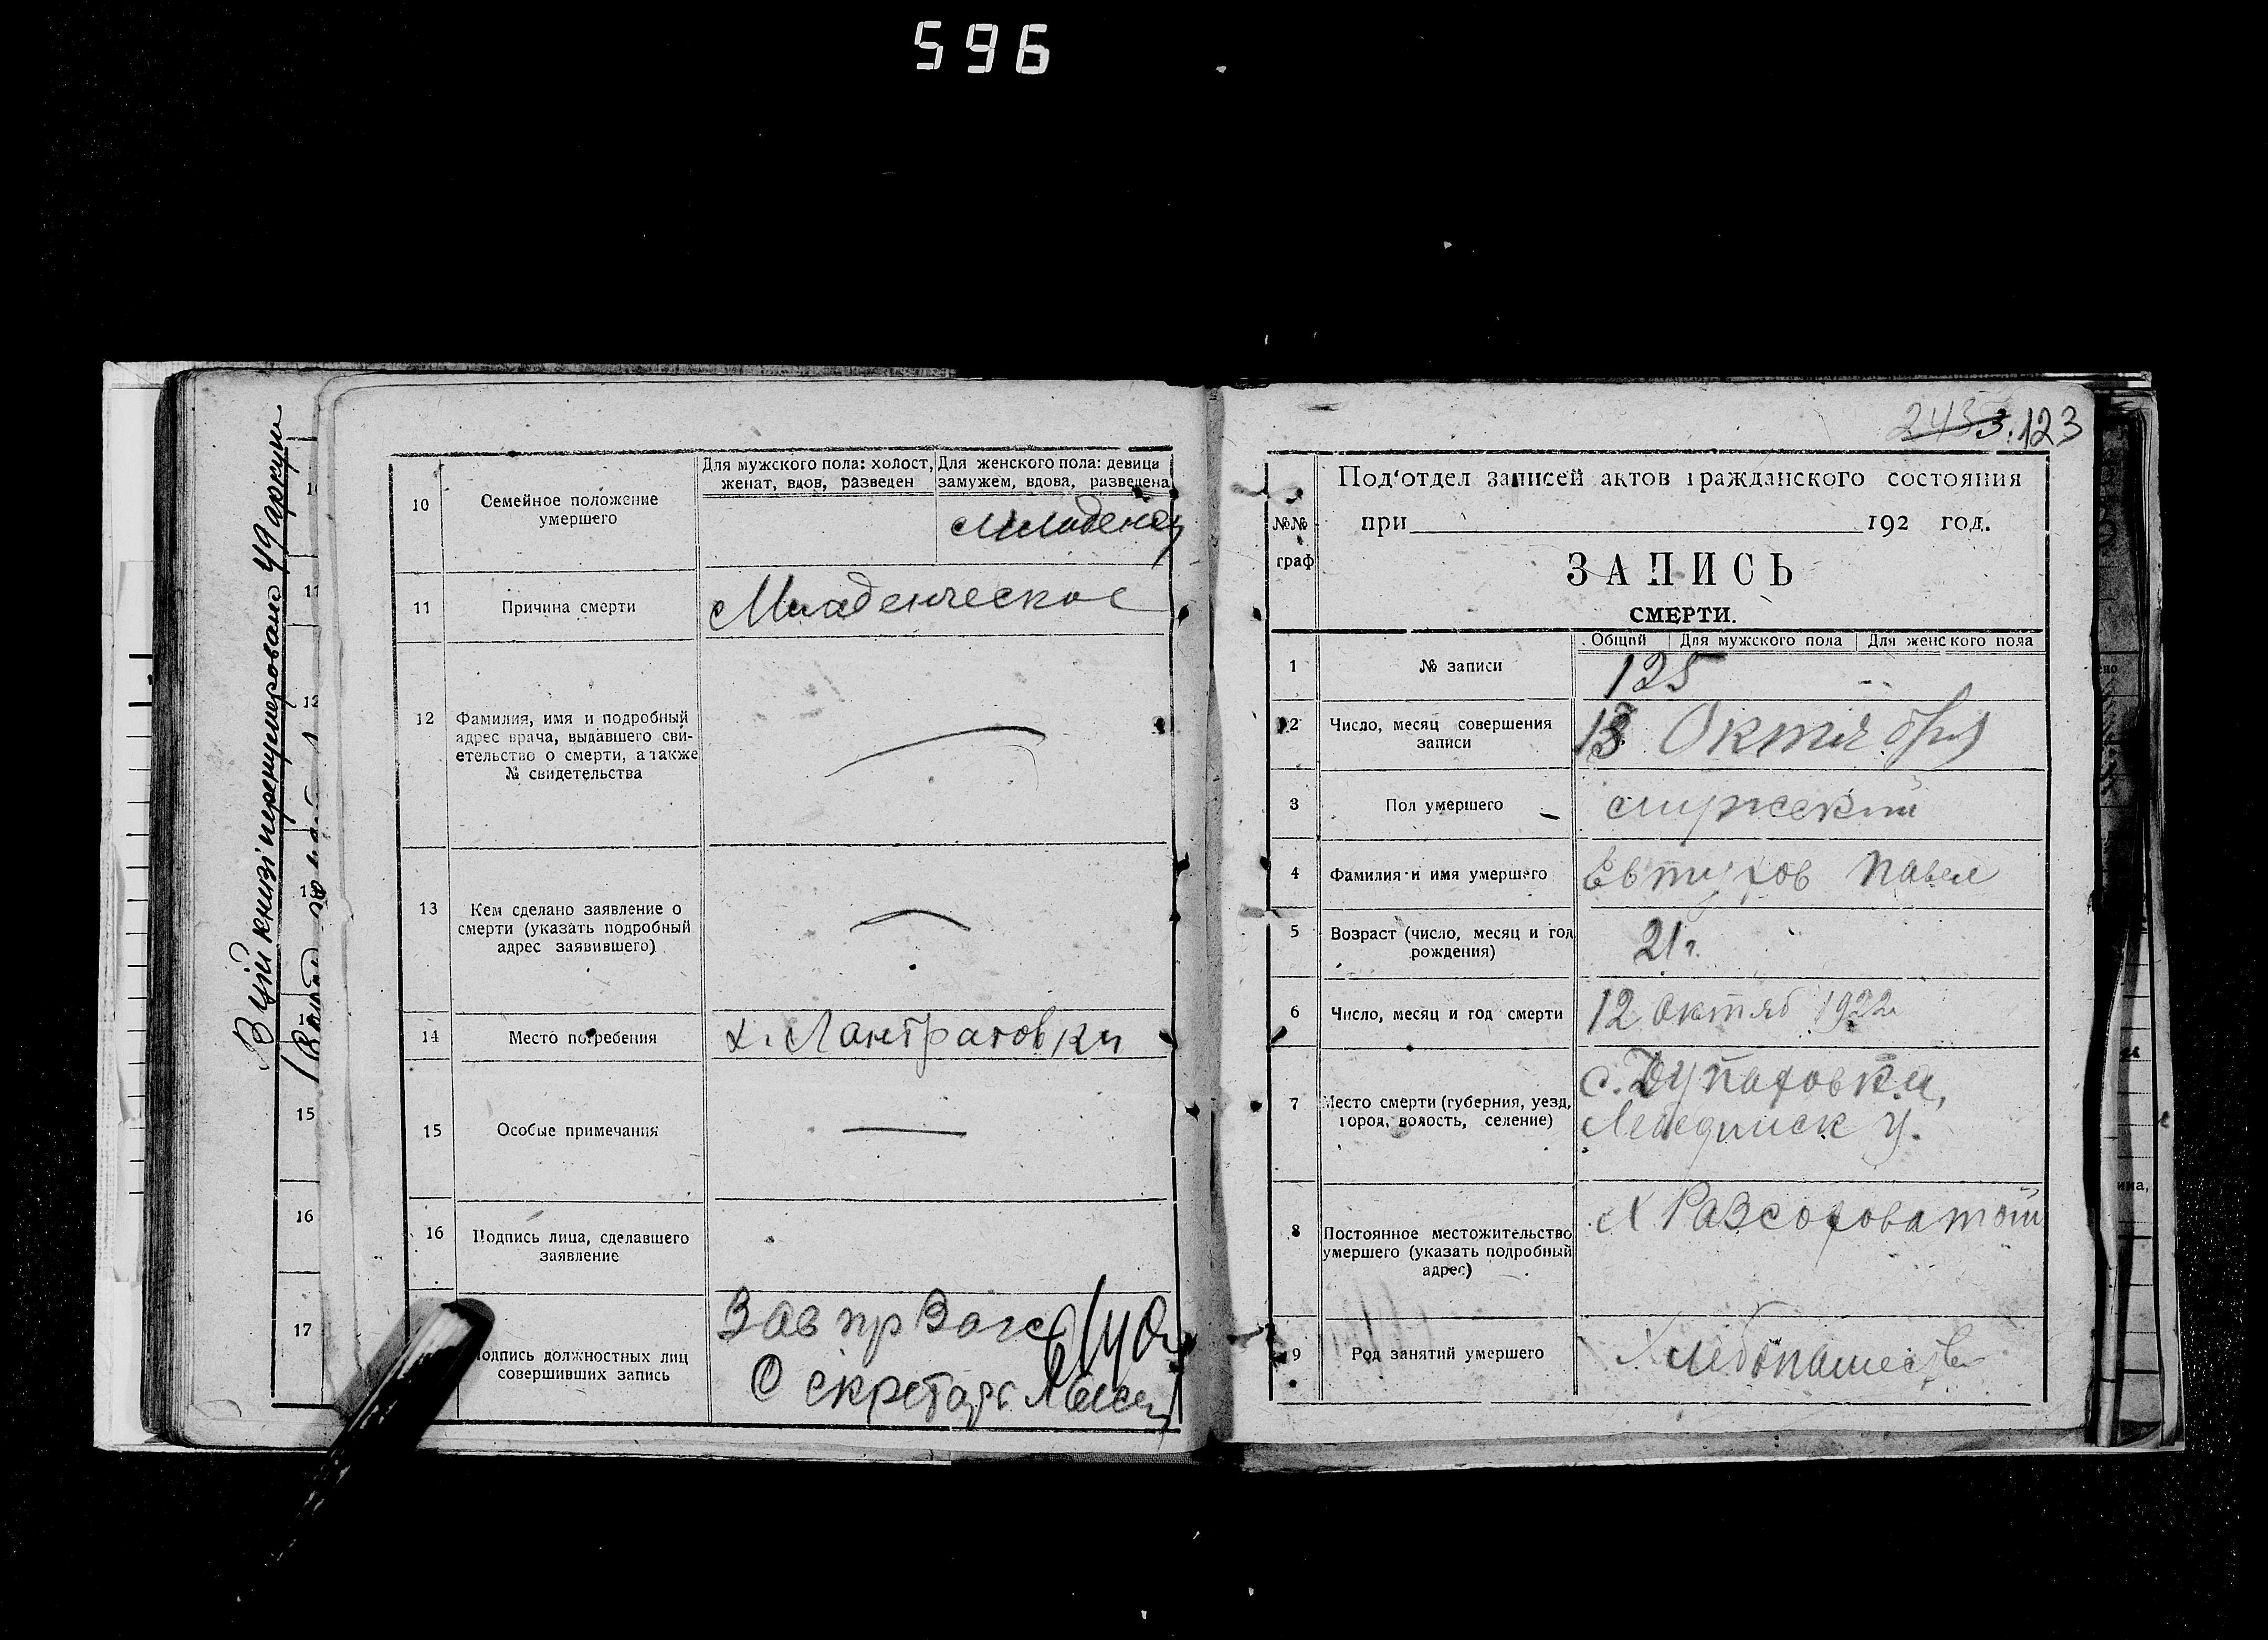 596
В цій книзі перенумеровано 49 аркуш
15
16
17
10
Семейное положение
умершего
Для мужского пола: холост,
женат, вдов, разведен
Для женского пола: девица
замужем, вдова, разведена
Младенец
11
Причина смерти
Младенческое
12
Фамилия, имя и подробный
адрес врача, выдавшего сви-
етельство о смерти, а также
№ свидетельства
13
Кем сделано заявление о
смерти (указать подробный
адрес заявившего)
14
Место погребения
х. Лантратовки
15
Особые примечания
16
Подпись лица, сделавшего
заявление
одпись должностных лиц
совершивших запись
Зав пр Загс
Секретарь
243 3. 123
№№
граф
Под'отдел записей актов гражданского состояния
при 192 год.
ЗАПИСЬ
СМЕРТИ.
Общий
Для мужского пола
Для женского пола
1
№ записи
125
2
Число, месяц совершения
записи
13 Октября
3
Пол умершего
мужский
4
Фамилия и имя умершего
Евтухов Павел
5
Возраст (число, месяц и год
рождения)
21 г.
6
Число, месяц и год смерти
12 октяб 1922
7
Место смерти (губерния, уезд,
город, волость, селение)
с.
Лебединск у.
8
Постоянное местожительство
умершего (указать подробный
адрес)
х Разсоховатой
9
Род занятий умершего
Хлебопашество